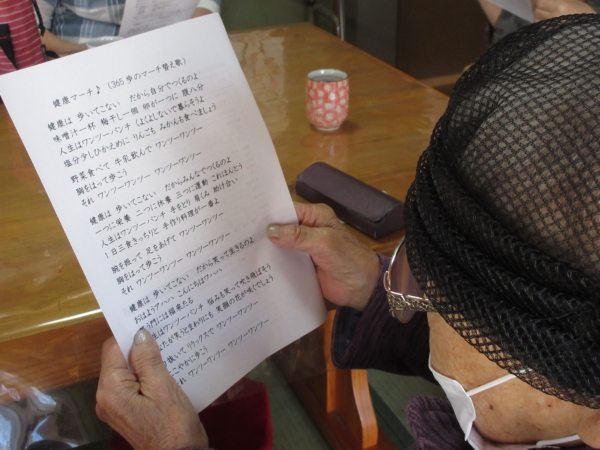 健康マーチ♪ (365歩のマーチ替え歌)
健康は 歩いてこない だから自分でつくるのよ
味噌汁一杯 梅干し一個 卵が一つに 腹八分
人生はワンツーパンチ くよくよしないで暮らそうよ
塩分少しひかえめに りんごも みかんも食べましょう
野菜食べて 牛乳飲んで ワンツーワンツー
胸をはって歩こう
それ ワンツーワンツー ワンツーワンツー
健康は 歩いてこない だからみんなでつくるのよ
一つに栄養 二つに休養 三つに運動 これほんとう
人生はワンツーパンチ 手をとり 肩くみ 助け合い
1日三食きっちりと 手作り料理が一番よ
腕を振って 足をあげて ワンツーワンツー
胸をはって歩こう
それ ワンツーワンツー ワンツーワンツー
健康は 歩いてこない だから笑って生きるのよ
おはようアハハ こんにちはワハハ
門には福来たる
人生はワンツーパンチ 悩みも笑って吹き飛ばそう
が笑うとまわりにも 笑顔の花が咲くでしょう
抜いて リラックスで ワンツーワンツー
やかに歩こう
れ ワンツーワンツー ワンツーワンツー